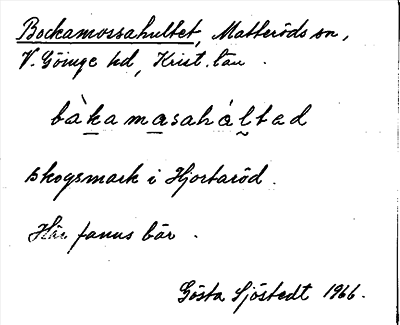 Bockamossahultet, Matteröds sn,
V. Göinge hd, Krist. län.
bàkamasahálted
skogsmark i Hjortaröd.
Här fanns bär.
Gösta Sjöstedt 1966.